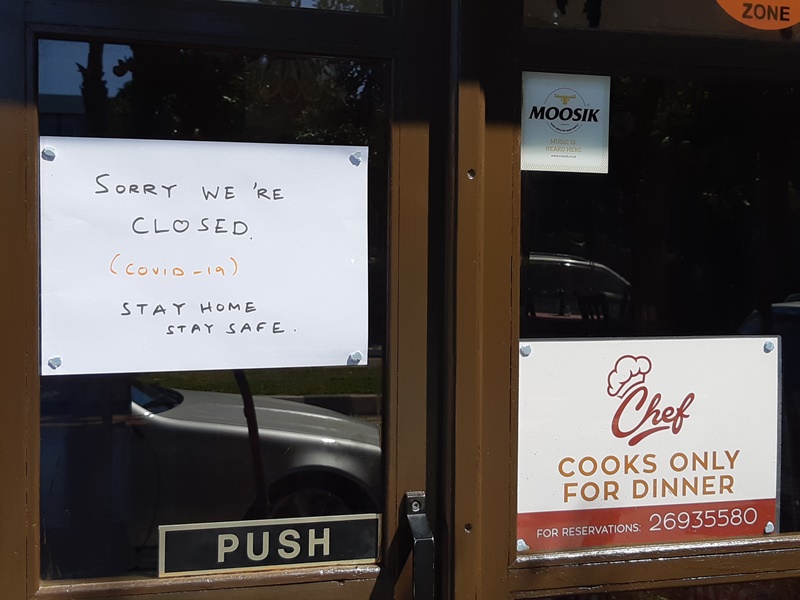 SORRY WE'RE
CLOSED.
(COVID-19)
STAY HOME
STAY SAFE.
PUSH
ZONE
MOOSIK
MUSIC IS
HEARD HERE
Chef
COOKS ONLY
FOR DINNER
FOR RESERVATIONS: 26935580